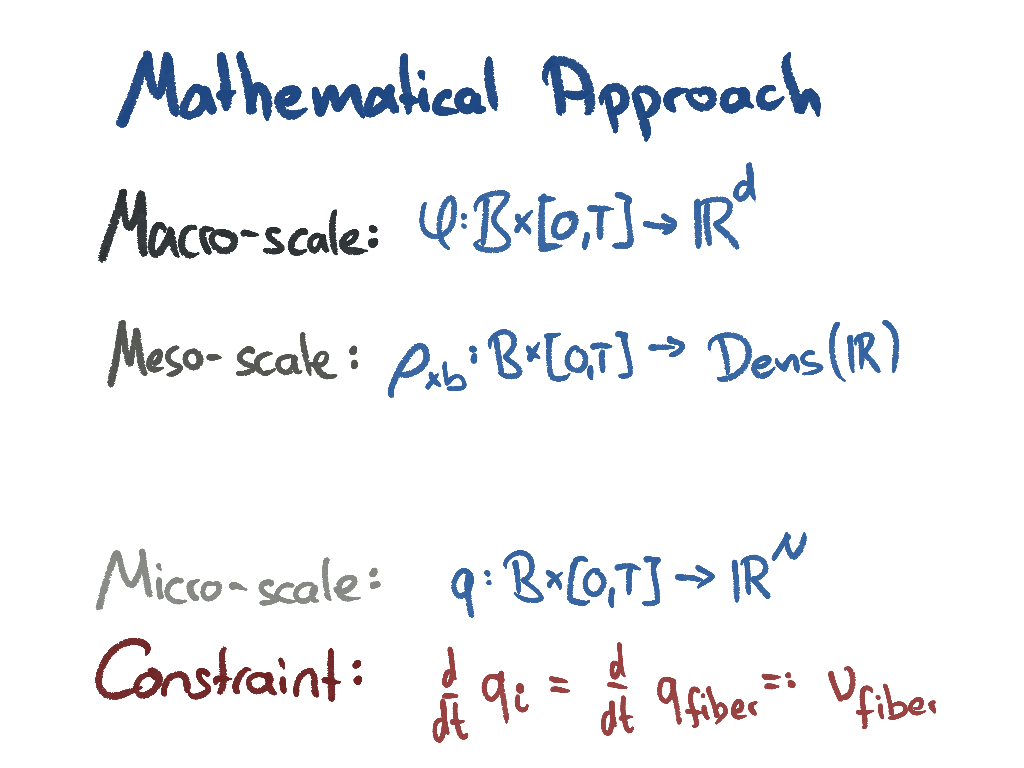 Mathematical Approach
Macro-scale: φ: B×[0,T] → ℝ^d
Meso-scale: ρ_xb: B×[0,T] → Dens(ℝ)
Micro-scale: q: B×[0,T] → ℝ^N
Constraint: d/dt q_i = d/dt q_fiber =: v_fiber